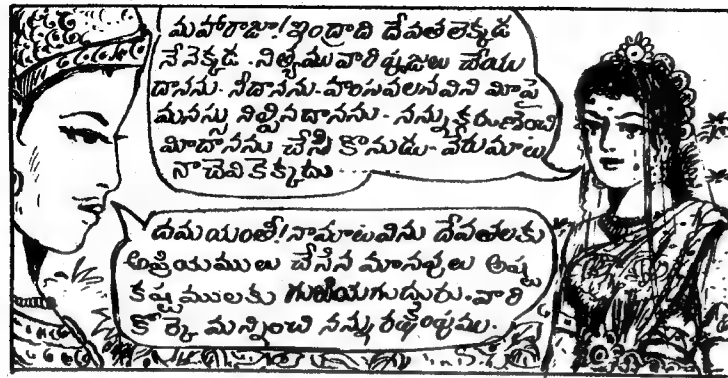 మహారాజా! ఇంద్రాది దేవతలెక్కడ
నేనెక్కడ. నిత్యము వారి పూజలు చేయు
దానను. నీదానను. హంసవలన విని మీపై
మనస్సు నిల్పినదానను. నన్ను కరుణించి
మీదానను చేసి కొనుడు. వేరుమాటలు
నా చెవి కెక్కదు......
దమయంతీ! నామాటవిను దేవతలకు
అప్రియములు చేసిన మానవులు అష్ట
కష్టములకు గురియగుదురు. వారి
కోర్కె మన్నించి నన్ను రక్షింపుము.